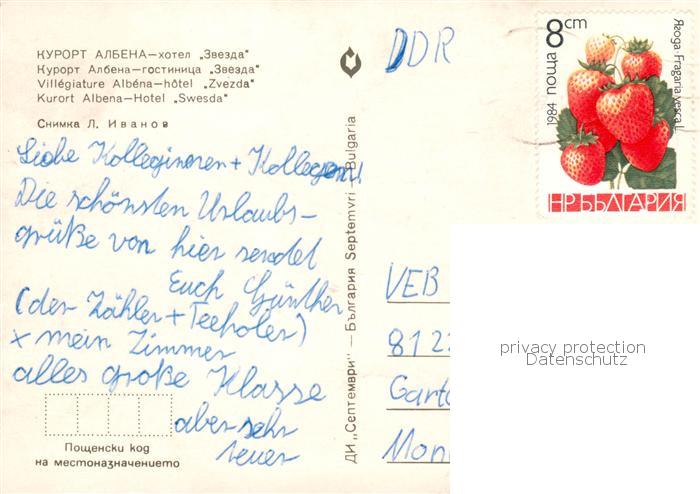 КУРОРТ АЛБЕНА—хотел „Звезда"
Курорт Албена—гостиница „Звезда"
Villégiature Albéna—hôtel „Zvezda"
Kurort Albena—Hotel „Swesda"
Снимка Л. Иванов
Liebe Kolleginnen + Kollegen!
Die schönsten Urlaubs-
grüße von hier sendet
Euch Günther
(der Zähler + Teeholer)
x mein Zimmer
alles große Klasse
aber sehr
teuer
Пощенски код
на местоназначението
ДИ „Септември" — България Septemvri — Bulgaria
DDR
8 cm
1984 поща
Ягода · Fragaria vesca L.
НР БЪЛГАРИЯ
VEB
812
Gart
Mon
privacy protection
Datenschutz